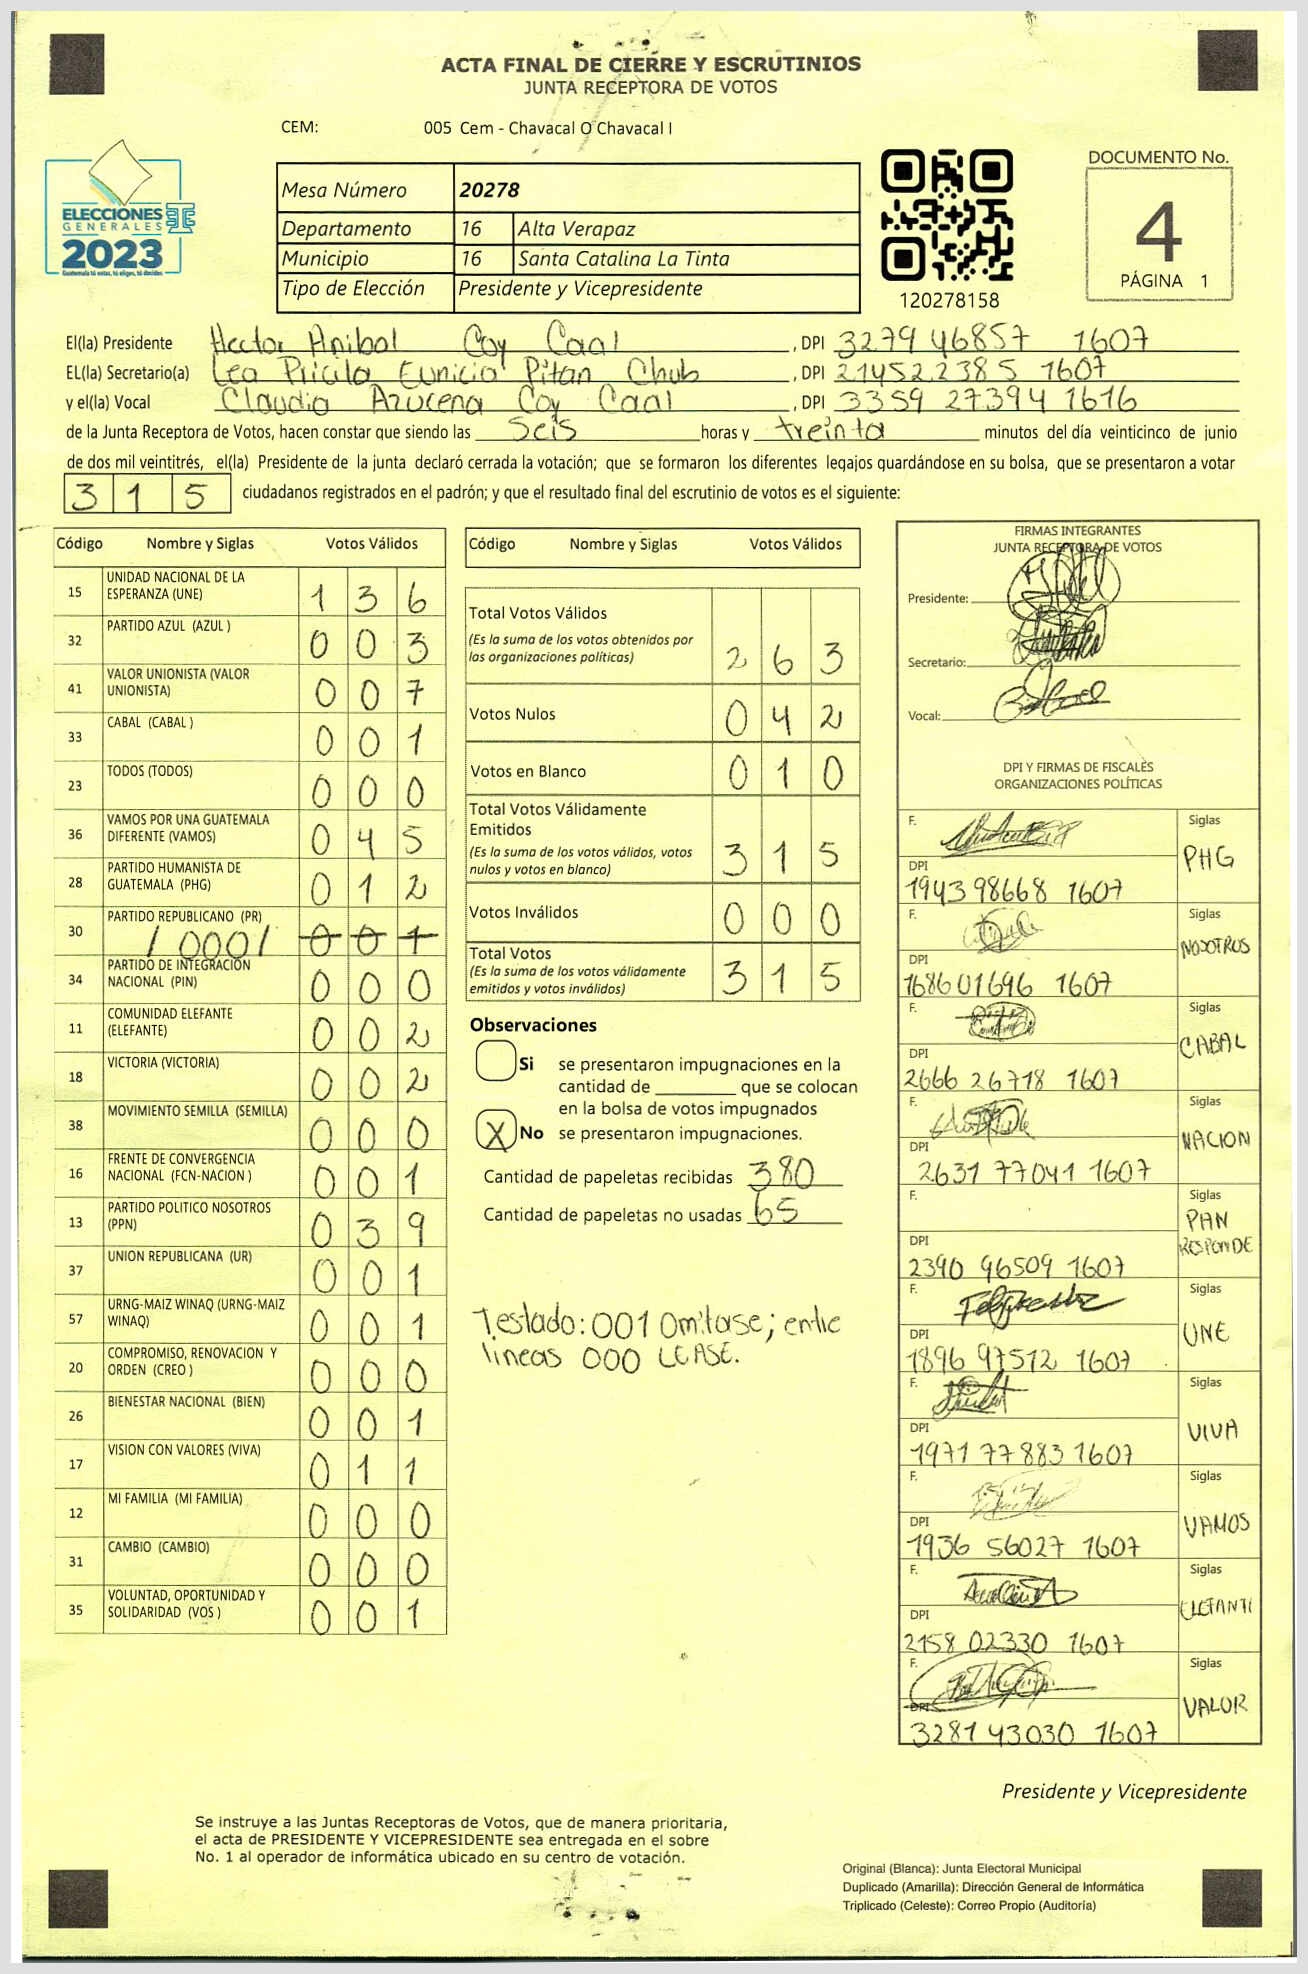 ACTA FINAL DE CIERRE Y ESCRUTINIOS
JUNTA RECEPTORA DE VOTOS
CEM: 005 Cem - Chavacal O Chavacal I
ELECCIONES
GENERALES
2023
Guatemala tú votas, tú eliges, tú decides
Mesa Número 20278
Departamento 16 Alta Verapaz
Municipio 16 Santa Catalina La Tinta
Tipo de Elección Presidente y Vicepresidente
120278158
DOCUMENTO No.
4
PÁGINA 1
El(la) Presidente Hector Anibal Coy Caal , DPI 3279 46857 1607
EL(la) Secretario(a) Lea Pricila Eunicia Pitan Chub , DPI 21452 2385 1607
y el(la) Vocal Claudia Azucena Coy Caal , DPI 3359 27394 1616
de la Junta Receptora de Votos, hacen constar que siendo las Seis horas y treinta minutos del día veinticinco de junio
de dos mil veintitrés, el(la) Presidente de la junta declaró cerrada la votación; que se formaron los diferentes legajos guardándose en su bolsa, que se presentaron a votar
3 1 5 ciudadanos registrados en el padrón; y que el resultado final del escrutinio de votos es el siguiente:
Código Nombre y Siglas Votos Válidos
15 UNIDAD NACIONAL DE LA ESPERANZA (UNE) 1 3 6
32 PARTIDO AZUL (AZUL ) 0 0 3
41 VALOR UNIONISTA (VALOR UNIONISTA) 0 0 7
33 CABAL (CABAL ) 0 0 1
23 TODOS (TODOS) 0 0 0
36 VAMOS POR UNA GUATEMALA DIFERENTE (VAMOS) 0 4 5
28 PARTIDO HUMANISTA DE GUATEMALA (PHG) 0 1 2
30 PARTIDO REPUBLICANO (PR) / 000 / 0 0 1
34 PARTIDO DE INTEGRACIÓN NACIONAL (PIN) 0 0 0
11 COMUNIDAD ELEFANTE (ELEFANTE) 0 0 2
18 VICTORIA (VICTORIA) 0 0 2
38 MOVIMIENTO SEMILLA (SEMILLA) 0 0 0
16 FRENTE DE CONVERGENCIA NACIONAL (FCN-NACION ) 0 0 1
13 PARTIDO POLITICO NOSOTROS (PPN) 0 3 9
37 UNION REPUBLICANA (UR) 0 0 1
57 URNG-MAIZ WINAQ (URNG-MAIZ WINAQ) 0 0 1
20 COMPROMISO, RENOVACION Y ORDEN (CREO ) 0 0 0
26 BIENESTAR NACIONAL (BIEN) 0 0 1
17 VISION CON VALORES (VIVA) 0 1 1
12 MI FAMILIA (MI FAMILIA) 0 0 0
31 CAMBIO (CAMBIO) 0 0 0
35 VOLUNTAD, OPORTUNIDAD Y SOLIDARIDAD (VOS ) 0 0 1
Código Nombre y Siglas Votos Válidos
Total Votos Válidos
(Es la suma de los votos obtenidos por
las organizaciones políticas) 2 6 3
Votos Nulos 0 4 2
Votos en Blanco 0 1 0
Total Votos Válidamente
Emitidos
(Es la suma de los votos válidos, votos
nulos y votos en blanco) 3 1 5
Votos Inválidos 0 0 0
Total Votos
(Es la suma de los votos válidamente
emitidos y votos inválidos) 3 1 5
Observaciones
Si se presentaron impugnaciones en la
cantidad de ________ que se colocan
en la bolsa de votos impugnados
X No se presentaron impugnaciones.
Cantidad de papeletas recibidas 380
Cantidad de papeletas no usadas 65
Testado: 001 Omitase; entre
lineas 000 LEASE.
FIRMAS INTEGRANTES
JUNTA RECEPTORA DE VOTOS
Presidente:
Secretario:
Vocal:
DPI Y FIRMAS DE FISCALES
ORGANIZACIONES POLÍTICAS
F. Siglas
PHG
DPI
1943 98668 1607
F. Siglas
NOSOTROS
DPI
1686 01696 1607
F. Siglas
CABAL
DPI
2666 26718 1607
F. Siglas
NACION
DPI
2631 77041 1607
F. Siglas
PAN
RESPONDE
DPI
2390 96509 1607
F. Siglas
UNE
DPI
1896 97512 1607
F. Siglas
VIVA
DPI
1971 77883 1607
F. Siglas
VAMOS
DPI
1936 56027 1607
F. Siglas
ELEFANTE
DPI
2158 02330 1607
F. Siglas
VALOR
DPI
3281 43030 1607
Presidente y Vicepresidente
Se instruye a las Juntas Receptoras de Votos, que de manera prioritaria,
el acta de PRESIDENTE Y VICEPRESIDENTE sea entregada en el sobre
No. 1 al operador de informática ubicado en su centro de votación.
Original (Blanca): Junta Electoral Municipal
Duplicado (Amarilla): Dirección General de Informática
Triplicado (Celeste): Correo Propio (Auditoría)